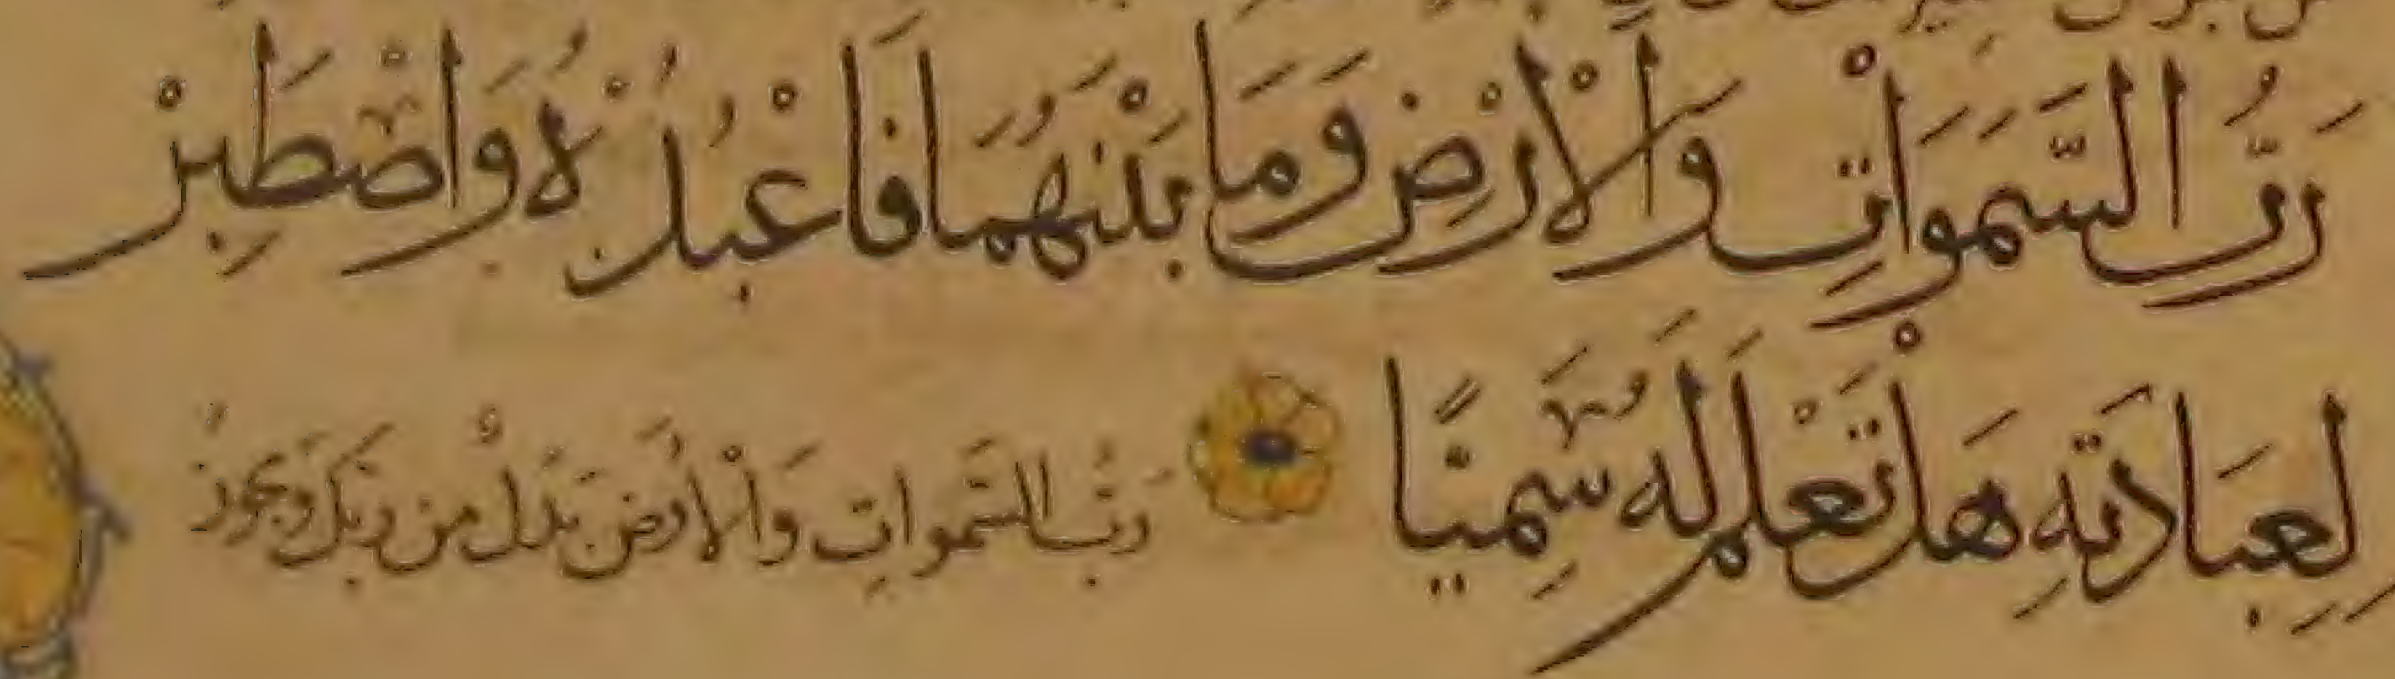 رَبُّ السَّمَوَاتِ وَالْأَرْضِ وَمَا بَيْنَهُمَا فَاعْبُدْهُ وَاصْطَبِرْ
لِعِبَادَتِهِ هَلْ تَعْلَمُ لَهُ سَمِيًّا رَبُّ السَّمَوَاتِ وَالْأَرْضِ بَدَلٌ مِن رَبِّكَ وَيَجُوزُ